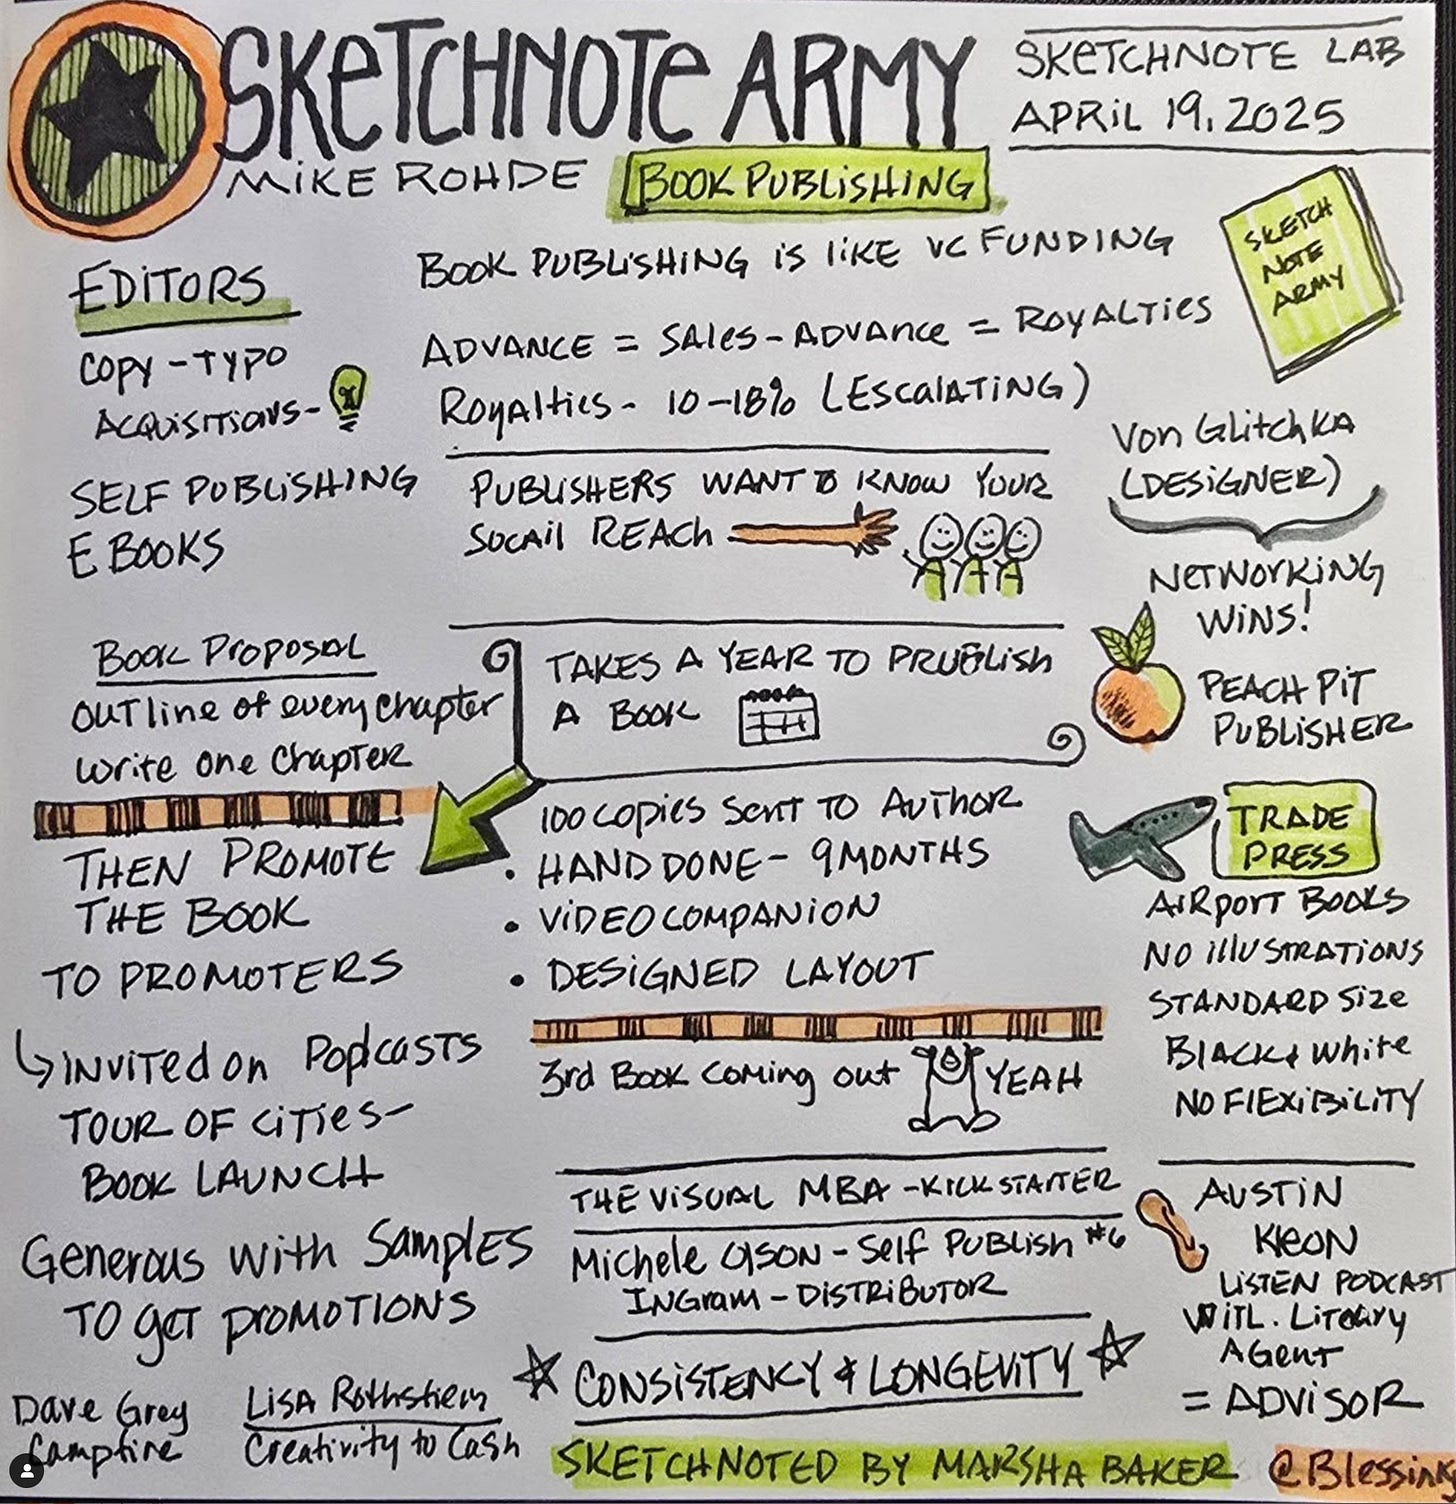 SKETCHNOTE ARMY
MIKE ROHDE
BOOK PUBLISHING
SKETCHNOTE LAB
APRIL 19, 2025
SKETCH
NOTE
ARMY
EDITORS
COPY - TYPO
ACQUISITIONS-
SELF PUBLISHING
E BOOKS
BOOK PUBLISHING IS LIKE VC FUNDING
ADVANCE = SALES - ADVANCE = ROYALTIES
ROYALTIES - 10-18% (ESCALATING)
PUBLISHERS WANT TO KNOW YOUR
SOCAIL REACH
VON GLITCHKA
(DESIGNER)
NETWORKING
WINS!
PEACH PIT
PUBLISHER
BOOK PROPOSAL
OUTLINE OF EVERY CHAPTER
WRITE ONE CHAPTER
TAKES A YEAR TO PRUBLISH
A BOOK
THEN PROMOTE
THE BOOK
TO PROMOTERS
INVITED ON PODCASTS
TOUR OF CITIES-
BOOK LAUNCH
GENEROUS WITH SAMPLES
TO GET PROMOTIONS
100 COPIES SENT TO AUTHOR
• HAND DONE - 9 MONTHS
• VIDEO COMPANION
• DESIGNED LAYOUT
3rd BOOK COMING OUT YEAH
TRADE
PRESS
AIRPORT BOOKS
NO ILLUSTRATIONS
STANDARD SIZE
BLACK & WHITE
NO FLEXIBILITY
THE VISUAL MBA - KICKSTARTER
MICHELE OLSON - SELF PUBLISH #6
INGRAM - DISTRIBUTOR
CONSISTENCY & LONGEVITY
AUSTIN
KLEON
LISTEN PODCAST
LITERARY
AGENT
= ADVISOR
DAVE GREY
CAMPFIRE
LISA ROTHSTIEN
CREATIVITY TO CASH
SKETCHNOTED BY MARSHA BAKER
@BLESSINK